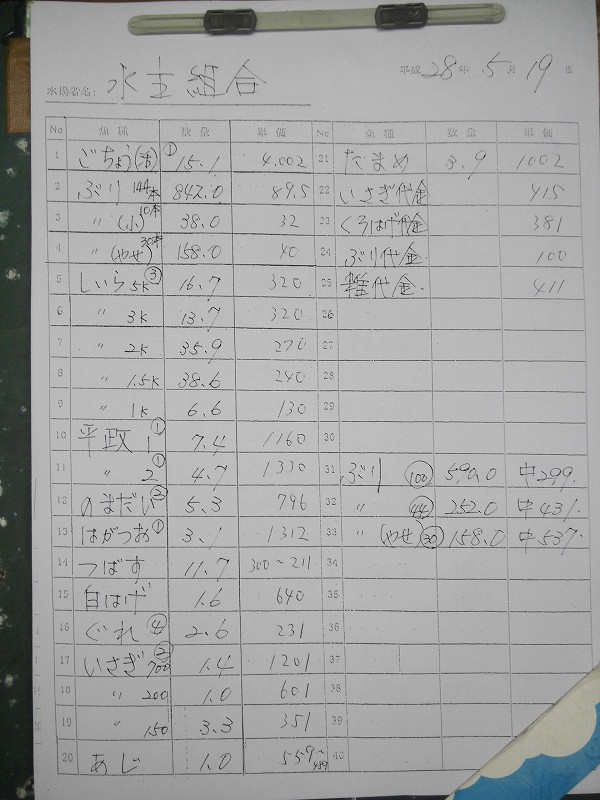 平成 28 年 5 月 19 日
水揚者名: 水主組合
No 魚種 数量 単価 No 魚種 数量 単価
1 ごちょう(活) ① 15.1 4,002 21 だまめ 3.9 1002
2 ぶり 144本 842.0 89.5 22 いさぎ代金 415
3 〃 (小) 10本 38.0 32 23 くろはげ代金 381
4 〃 (やせ) 30本 158.0 40 24 ぶり代金 100
5 しいら 5K ③ 16.7 320 25 雑代金 411
6 〃 3K 13.7 320 26
7 〃 2K 35.9 270 27
8 〃 1.5K 38.6 240 28
9 〃 1K 6.6 130 29
10 平政 1 ① 7.4 1160 30
11 〃 2 ① 4.7 1330 31 ぶり ⑩⓪ 590.0 中 299.
12 のまだい ② 5.3 796 32 〃 ㊹ 252.0 中 431.
13 はがつお ① 3.1 1312 33 〃 (やせ) ㉚ 158.0 中 537.
14 つばす 11.7 300〜211 34
15 白はげ 1.6 640 35
16 ぐれ ④ 2.6 231 36
17 いさぎ ② 700 1.4 1201 37
18 〃 200 1.0 601 38
19 〃 150 3.3 351 39
20 あじ 1.0 559〜 40